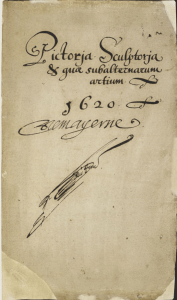 Pictoria Sculptoria
& quæ subalternarum
artium
1620